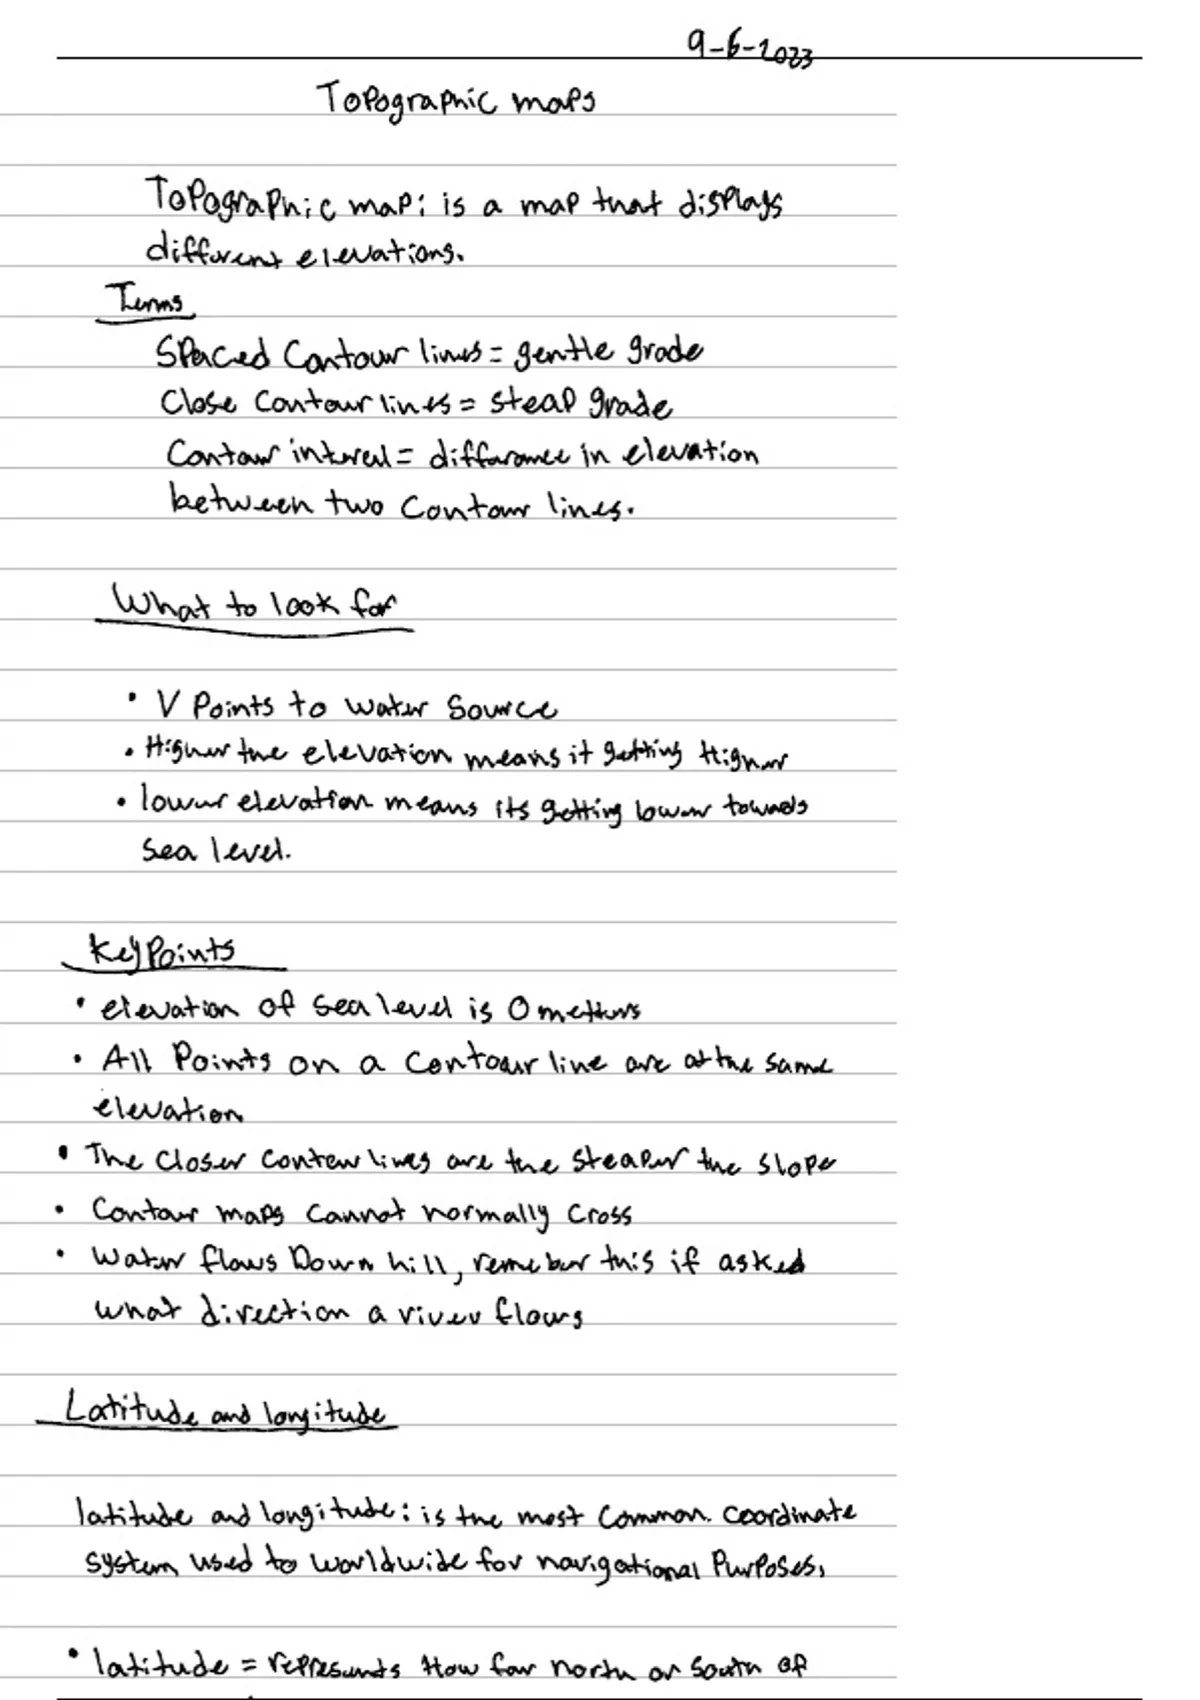 9-6-2023
Topographic maps
Topographic map: is a map that displays
different elevations.
Terms
Spaced Contour lines = gentle grade
Close Contour lines = steap grade
Contour interval = difference in elevation
between two Contour lines.
What to look for
• V Points to water source
• Higher the elevation means it getting Higher
• lower elevation means its getting lower towards
sea level.
Key Points
• elevation of sea level is 0 metters
• All Points on a contour line are at the same
elevation
• The closer contour lines are the steaper the slope
• Contour maps cannot normally cross
• Water flows Down hill, remeber this if asked
what direction a river flows
Latitude and longitude
latitude and longitude: is the most common coordinate
system used to worldwide for navigational Purposes.
• latitude = represents How far north or south of